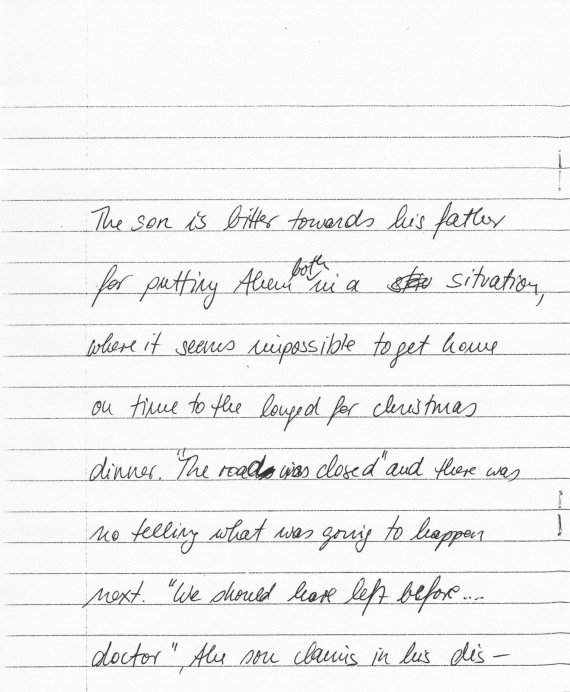 The son is bitter towards his father
for putting them both in a situation,
where it seems impossible to get home
on time to the longed for christmas
dinner. "The road was closed" and there was
no telling what was going to happen
next. "We should have left before....
doctor", the son claims in his dis-